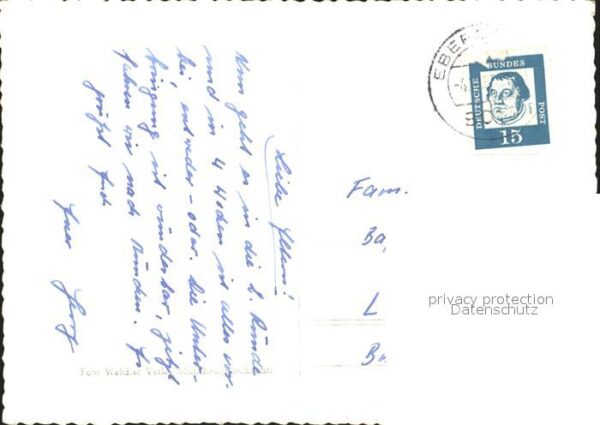 Liebe Eltern!
Nun geht es in die 2. Runde
und in 4 Wochen ist alles vor-
bei, entweder - oder. Die Unter-
bringung ist wunderbar, jetzt
fahren wir nach München. Es
grüßt Euch
Euer
Fam.
Ba
L
Ba
EBER
DEUTSCHE
BUNDES
POST
15
privacy protection
Datenschutz
Foto